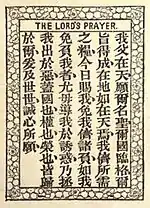 THE LORD'S PRAYER.
我父在天願爾名聖爾國臨格爾
旨得成在地如在天焉我儕所需
之糧今日賜我免我儕負如我
免負我者毋導我於誘惑乃拯
我出於惡蓋國也權也榮也皆歸
於爾爰及世世誠心所願